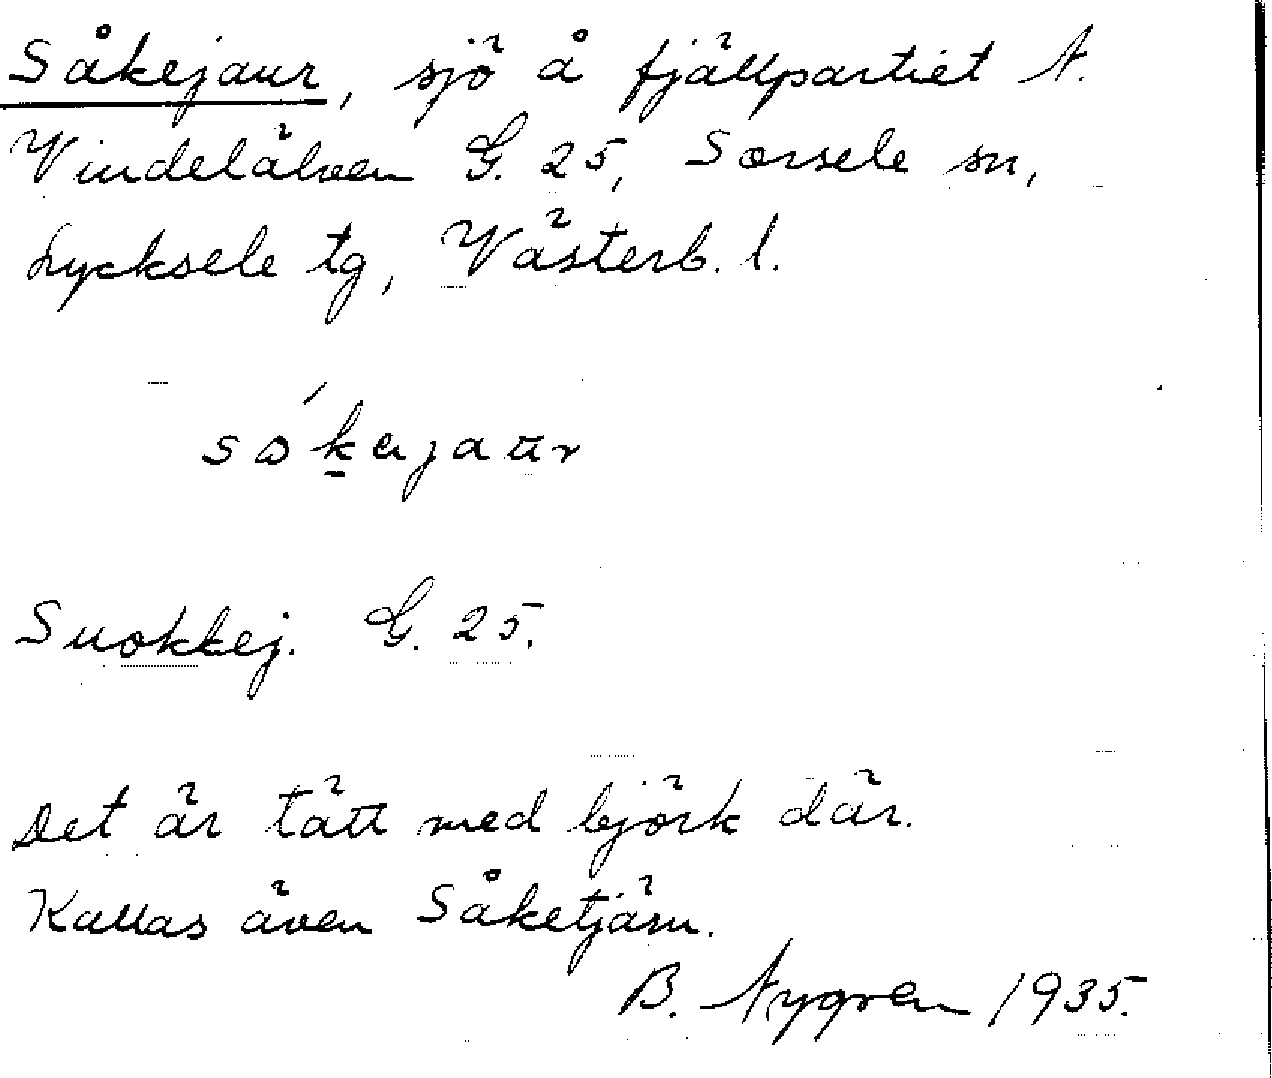 Såkejaur, sjö å fjällpartiet N.
Vindelälven G. 25, Sorsele sn,
Lycksele tg, Västerb. l.
Suokkej. G. 25.
Det är tätt med björk där.
Kallas även Såketjärn.
B. Nygren 1935.